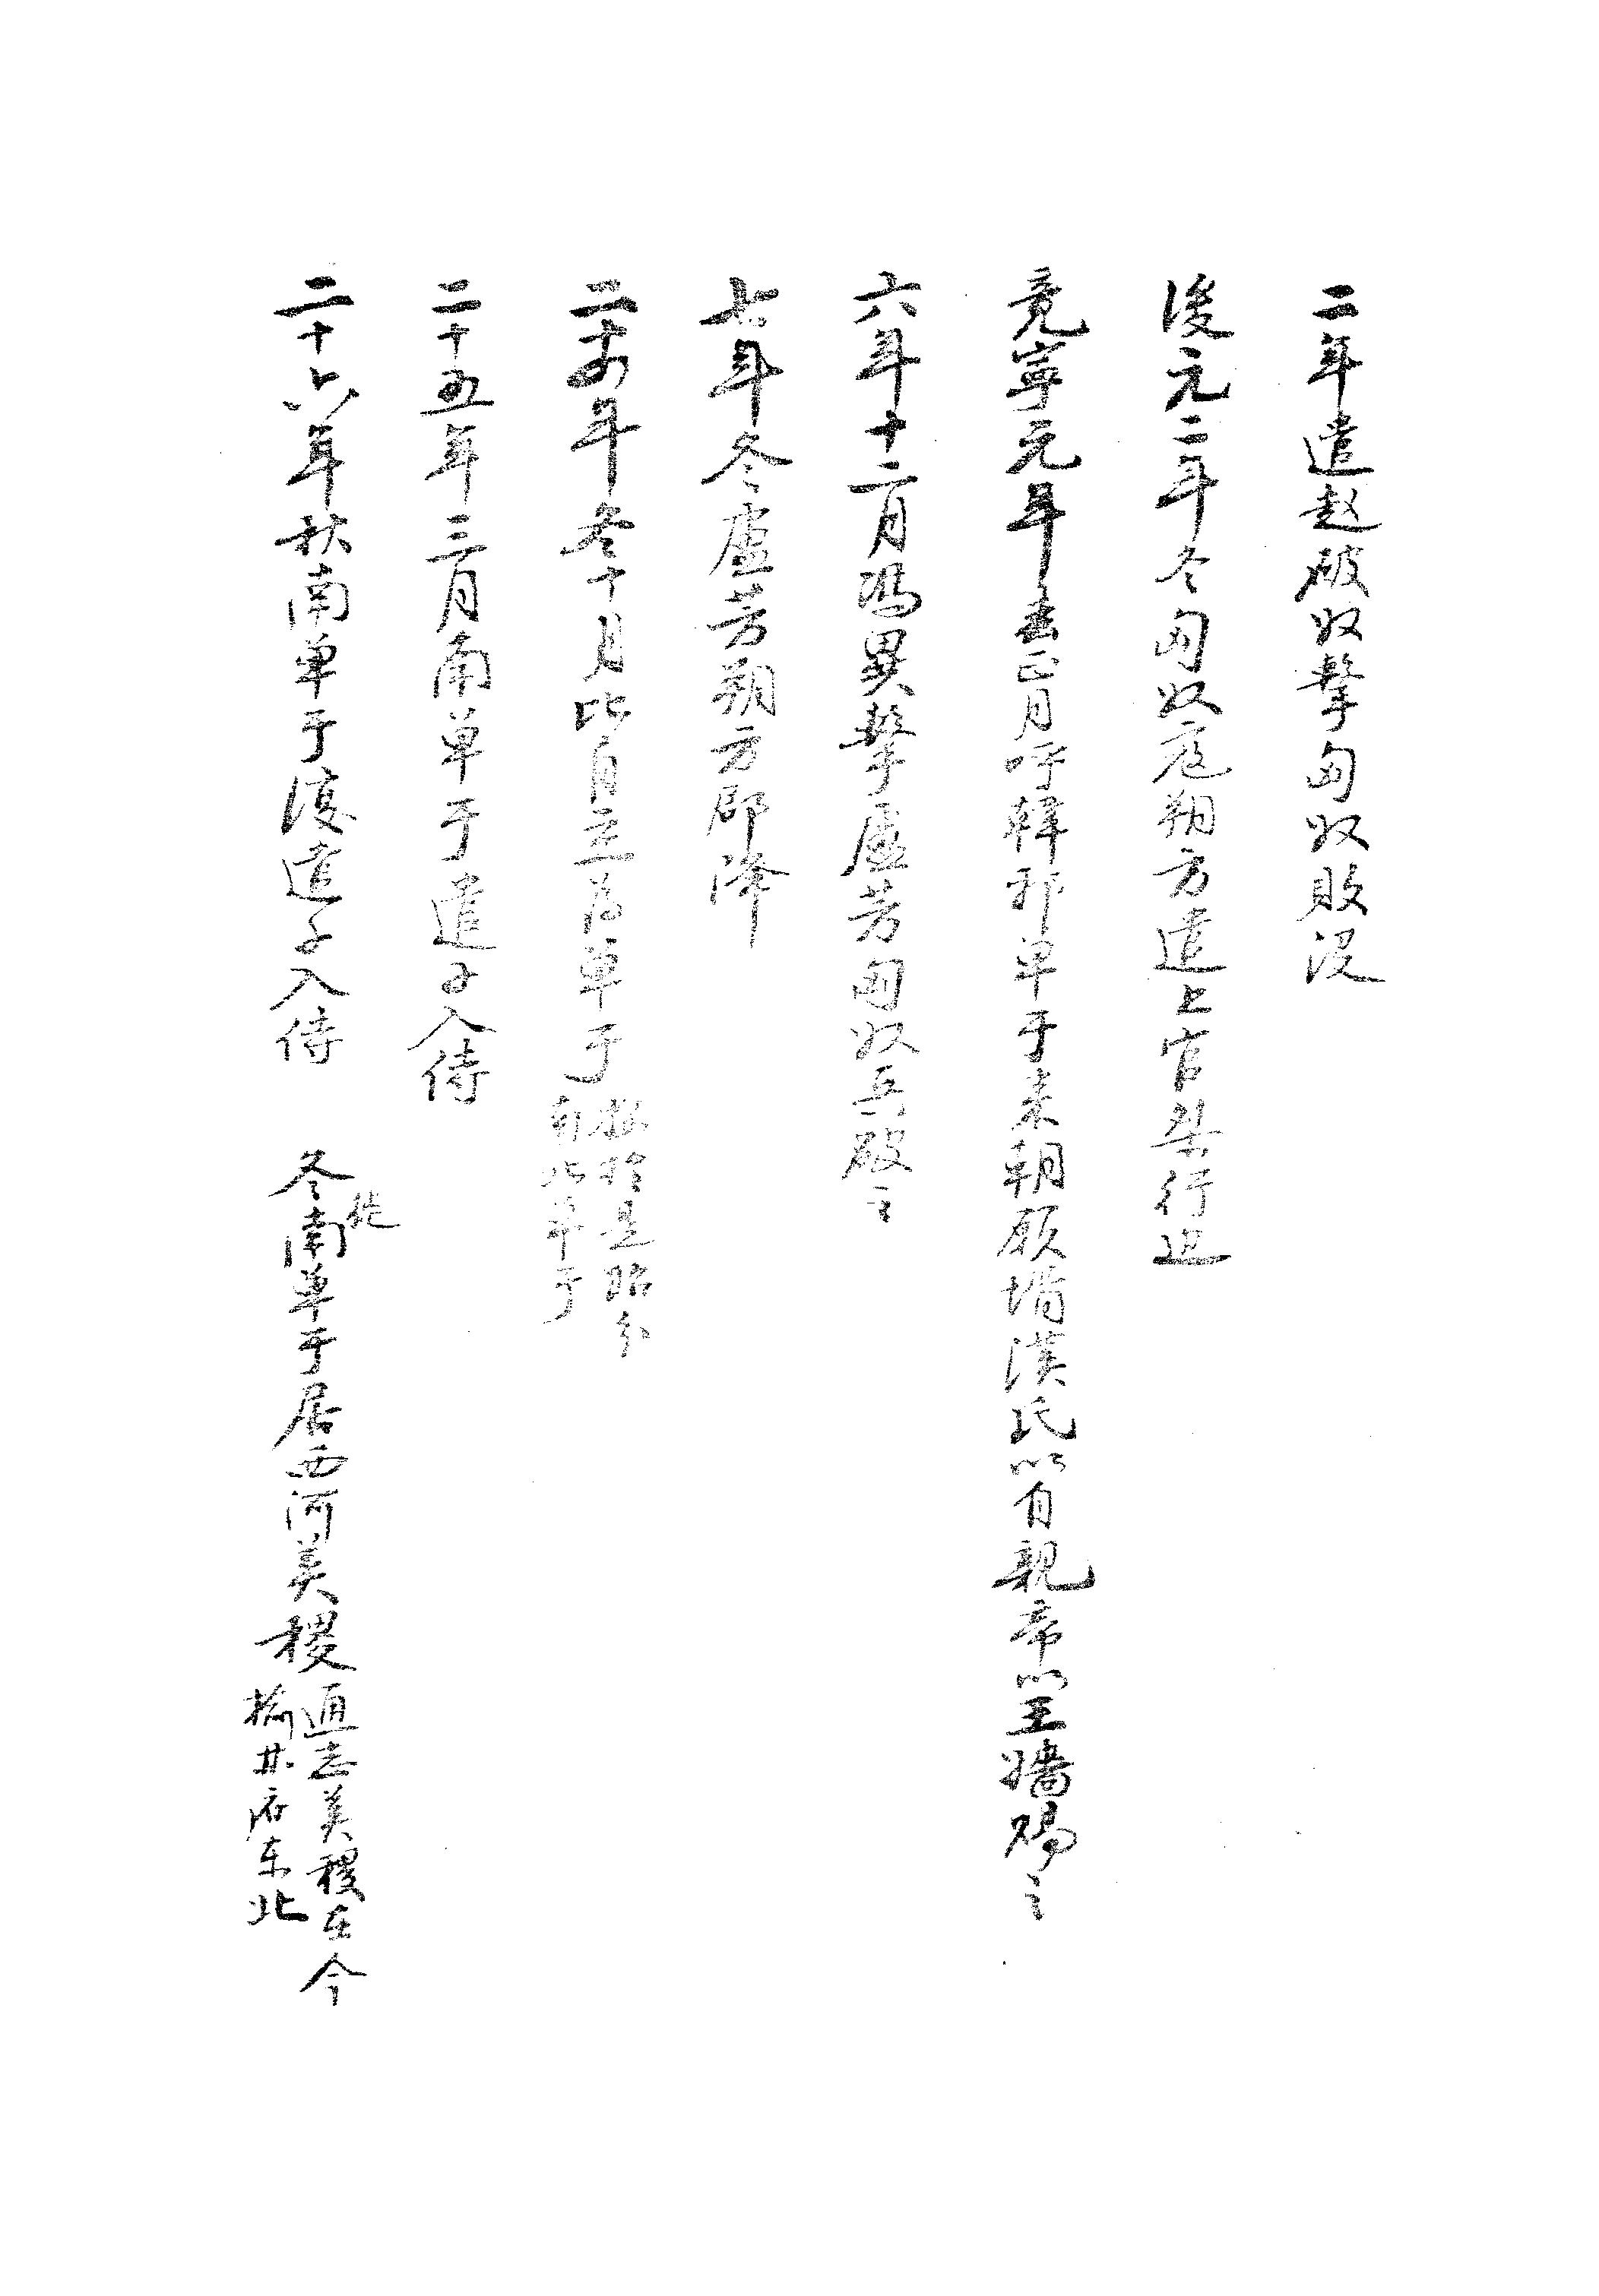 二年遣赵破奴擊匈奴敗没
後元二年冬匈奴寇朔方遣上官桀行边
竟寧元年春正月呼韓邪单于来朝願壻漢氏以自親帝以王嬙賜之
六年十二月馮異擊盧芳匈奴兵破之
七年冬盧芳朔方郡降
二十四年冬十月比自立为单于
於是始分
南北单于
二十五年三月南单于遣子入侍
二十六年秋南单于復遣子入侍 冬徙南单于居西河美稷
通志美稷在今
榆林府东北